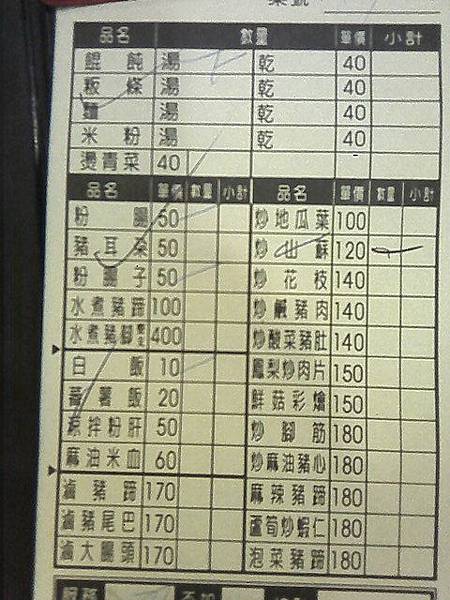 品名 數量 單價 小計
餛飩 湯 乾 40
粄條 湯 乾 40
麵 湯 乾 40
米粉 湯 乾 40
燙青菜 40
品名 單價 數量 小計 品名 單價 數量 小計
粉腸 50 炒地瓜葉 100
豬耳朵 50 炒山蘇 120
粉腸子 50 炒花枝 140
水煮豬蹄 100 炒鹹豬肉 140
水煮豬腳 400 炒酸菜豬肚 140
白飯 10 鳳梨炒肉片 150
蕃薯飯 20 鮮菇彩燴 150
涼拌粉肝 50 炒腳筋 180
麻油米血 60 炒麻油豬心 180
滷豬蹄 170 麻辣豬蹄 180
滷豬尾巴 170 蘆筍炒蝦仁 180
滷大腸頭 170 泡菜豬蹄 180